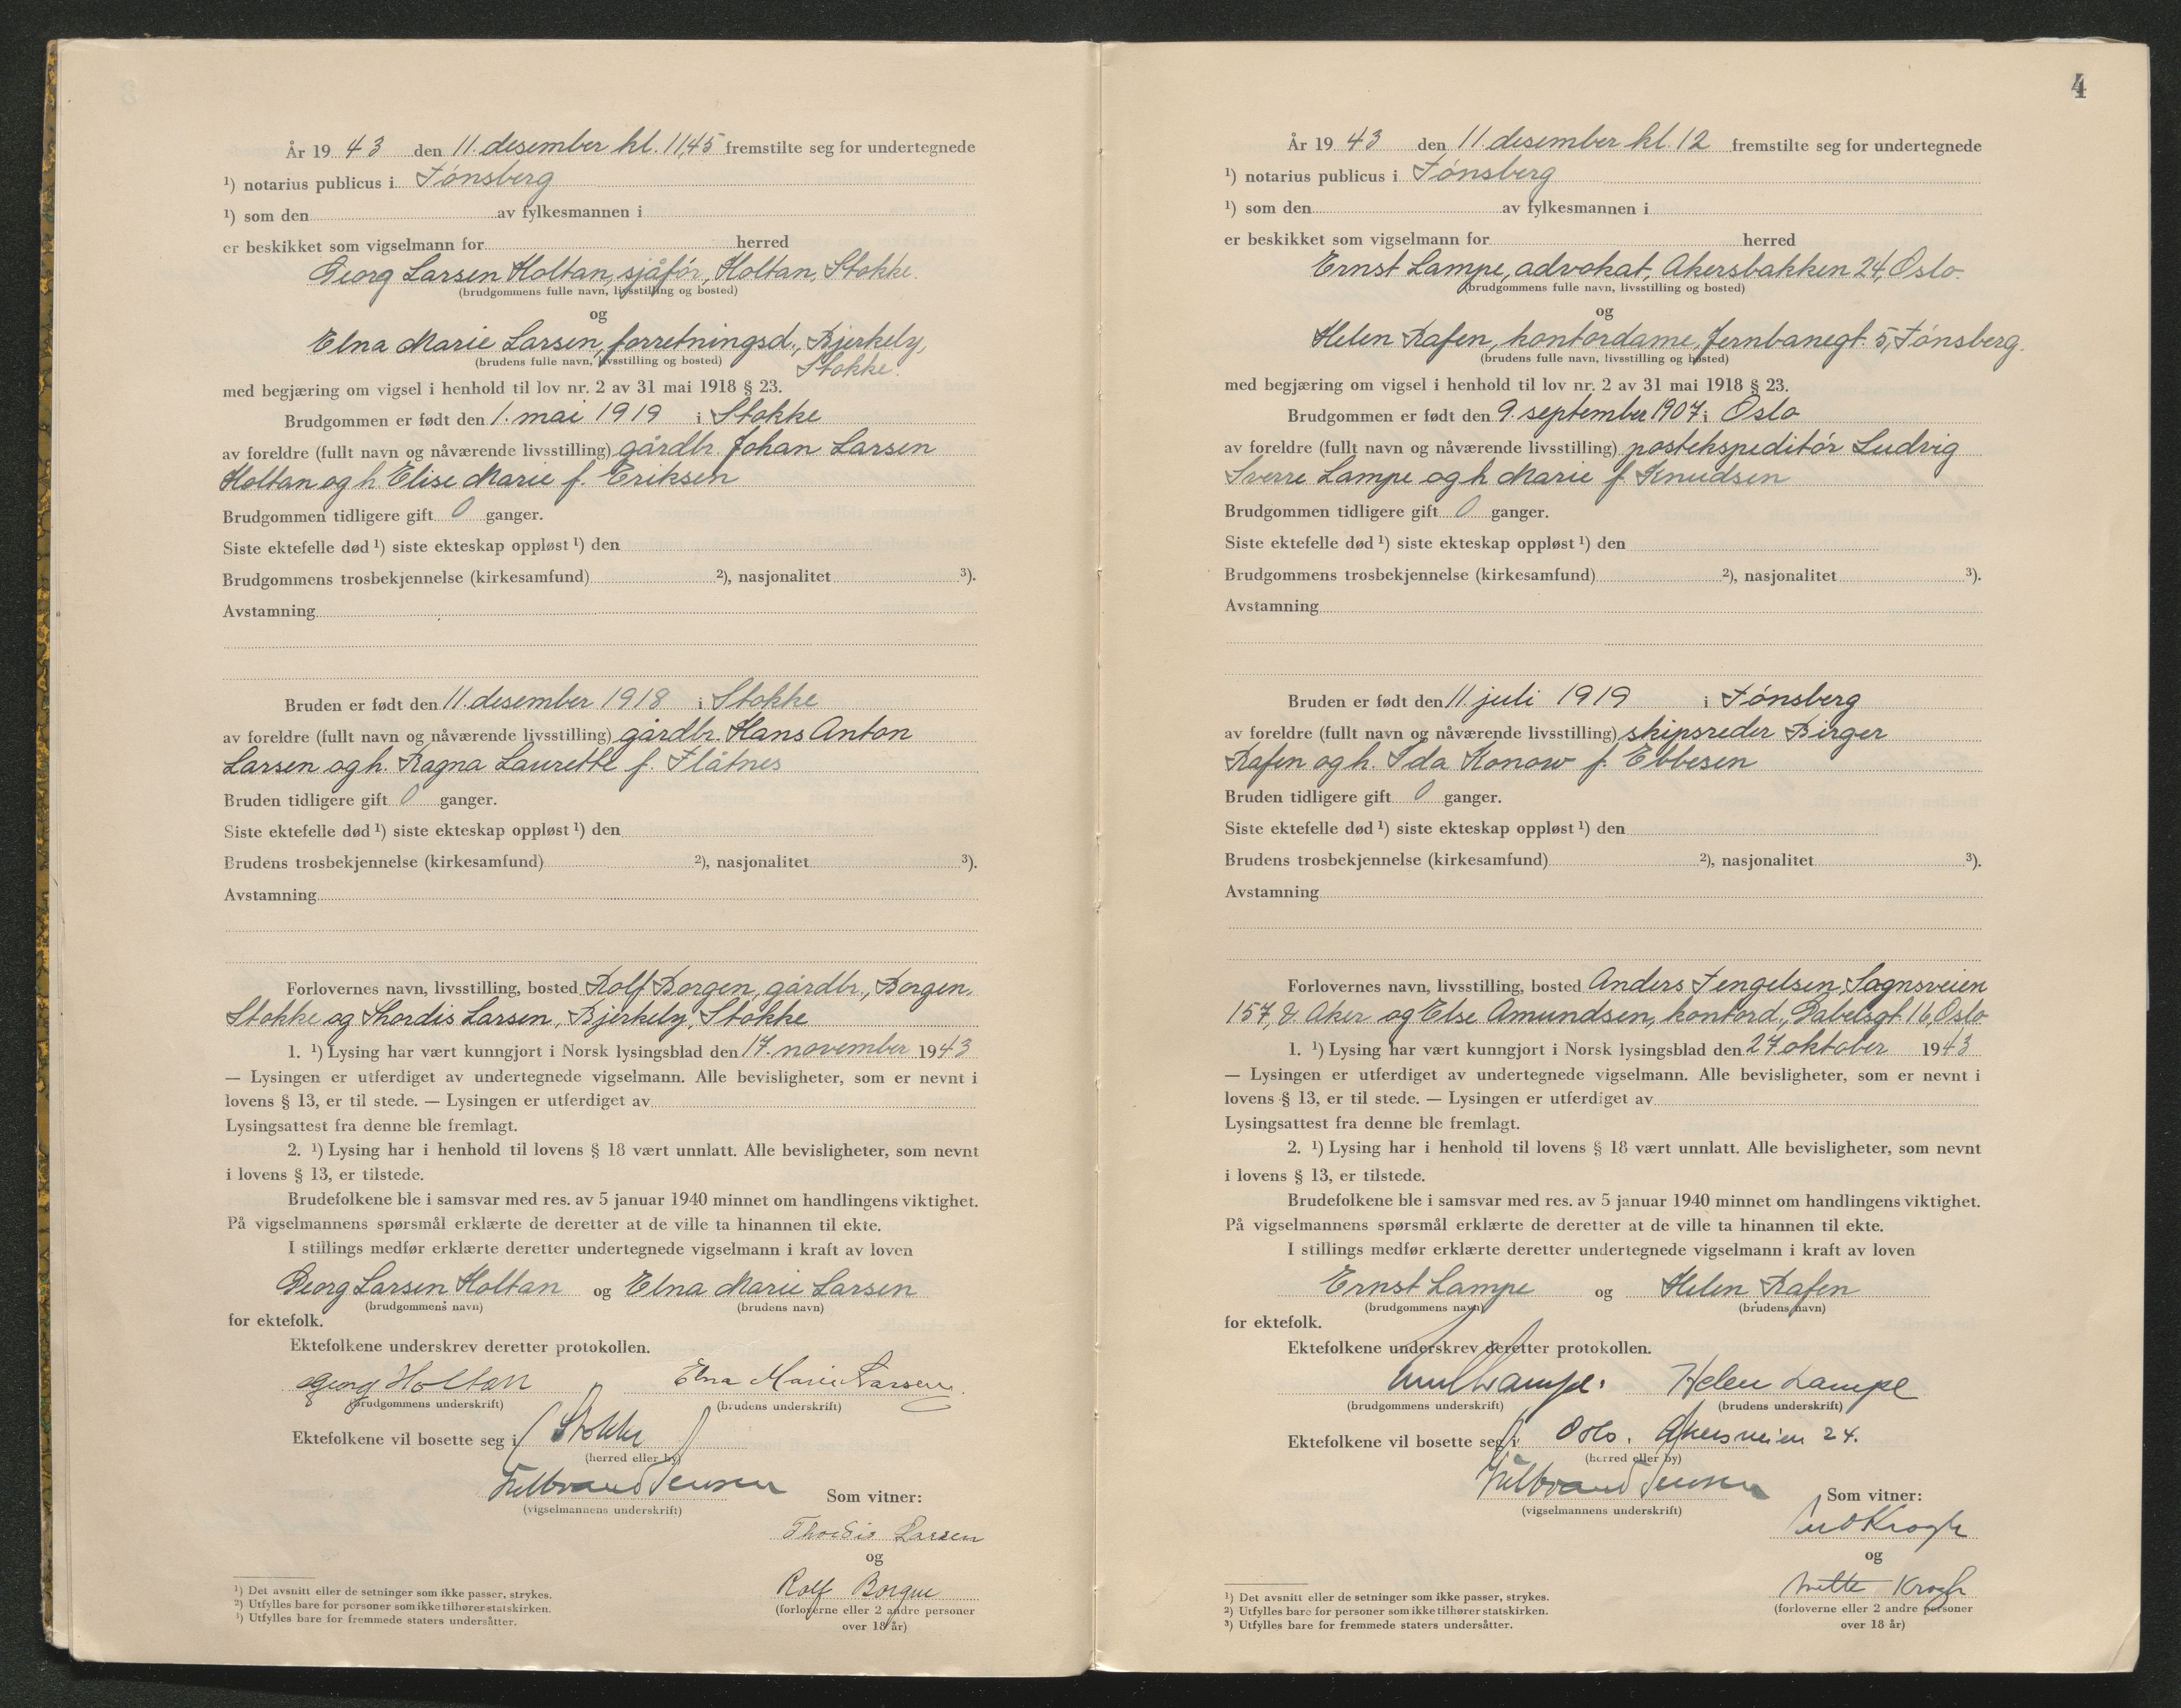 År 1943 den 11. desember kl. 11,45 fremstilte seg for undertegnede
¹) notarius publicus i Tónsberg
¹) som den av fylkesmannen i
er beskikket som vigselmann for herred
Georg Larsen Holtan, sjåfór, Holtan, Stokke.
(brudgommens fulle navn, livsstilling og bosted)
og
Elna Marie Larsen, forretningsd., Bjerkely,
(brudens fulle navn, livsstilling og bosted)
Stokke.
med begjæring om vigsel i henhold til lov nr. 2 av 31 mai 1918 § 23.
Brudgommen er født den 1. mai 1919 i Stokke
av foreldre (fullt navn og nåværende livsstilling) gårdbr. Johan Larsen
Holtan og h. Elise Marie f. Eriksen
Brudgommen tidligere gift 0 ganger.
Siste ektefelle død ¹) siste ekteskap oppløst ¹) den
Brudgommens trosbekjennelse (kirkesamfund) ²), nasjonalitet ³).
Avstamning
Bruden er født den 11. desember 1918 i Stokke
av foreldre (fullt navn og nåværende livsstilling) gårdbr. Hans Anton
Larsen og h. Ragna Laurette f. Flåtnes
Bruden tidligere gift 0 ganger.
Siste ektefelle død ¹) siste ekteskap oppløst ¹) den
Brudens trosbekjennelse (kirkesamfund) ²), nasjonalitet ³).
Avstamning
Forlovernes navn, livsstilling, bosted Rolf Borgen, gårdbr., Borgen,
Stokke og Thordis Larsen, Bjerkely, Stokke
1. ¹) Lysing har vært kunngjort i Norsk lysingsblad den 17. november 1943
— Lysingen er utferdiget av undertegnede vigselmann. Alle bevisligheter, som er nevnt i
lovens § 13, er til stede. — Lysingen er utferdiget av
Lysingsattest fra denne ble fremlagt.
2. ¹) Lysing har i henhold til lovens § 18 vært unnlatt. Alle bevisligheter, som nevnt
i lovens § 13, er tilstede.
Brudefolkene ble i samsvar med res. av 5 januar 1940 minnet om handlingens viktighet.
På vigselmannens spørsmål erklærte de deretter at de ville ta hinannen til ekte.
I stillings medfør erklærte deretter undertegnede vigselmann i kraft av loven
Georg Larsen Holtan og Elna Marie Larsen
(brudgommens navn) (brudens navn)
for ektefolk.
Ektefolkene underskrev deretter protokollen.
Georg Holtan Elna Marie Larsen
(brudgommens underskrift) (brudens underskrift)
Ektefolkene vil bosette seg i Stokke
(herred eller by)
Jensen
(vigselmannens underskrift)
Som vitner:
Thordis Larsen
og
Rolf Borgen
(forloverne eller 2 andre personer
over 18 år)
¹) Det avsnitt eller de setninger som ikke passer, strykes.
²) Utfylles bare for personer som ikke tilhører statskirken.
³) Utfylles bare for fremmede staters undersåtter.
4
År 1943 den 11. desember kl. 12 fremstilte seg for undertegnede
¹) notarius publicus i Tónsberg
¹) som den av fylkesmannen i
er beskikket som vigselmann for herred
Ernst Lampe, advokat, Akersbakken 24, Oslo.
(brudgommens fulle navn, livsstilling og bosted)
og
Helen Rafen, kontordame, Jernbanegt. 5, Tónsberg.
(brudens fulle navn, livsstilling og bosted)
med begjæring om vigsel i henhold til lov nr. 2 av 31 mai 1918 § 23.
Brudgommen er født den 9. september 1907 i Oslo
av foreldre (fullt navn og nåværende livsstilling) postekspeditór Ludvig
Sverre Lampe og h Marie f. Knudsen
Brudgommen tidligere gift 0 ganger.
Siste ektefelle død ¹) siste ekteskap oppløst ¹) den
Brudgommens trosbekjennelse (kirkesamfund) ²), nasjonalitet ³).
Avstamning
Bruden er født den 11 juli 1919 i Tónsberg
av foreldre (fullt navn og nåværende livsstilling) skipsreder Birger
Rafen og h. Ida Konow f. Ebbesen
Bruden tidligere gift 0 ganger.
Siste ektefelle død ¹) siste ekteskap oppløst ¹) den
Brudens trosbekjennelse (kirkesamfund) ²), nasjonalitet ³).
Avstamning
Forlovernes navn, livsstilling, bosted Anders Tengelsen, Sognsveien
157, V. Aker og Else Amundsen, kontord., Dabelsgt. 16, Oslo
1. ¹) Lysing har vært kunngjort i Norsk lysingsblad den 27 oktober 1943
— Lysingen er utferdiget av undertegnede vigselmann. Alle bevisligheter, som er nevnt i
lovens § 13, er til stede. — Lysingen er utferdiget av
Lysingsattest fra denne ble fremlagt.
2. ¹) Lysing har i henhold til lovens § 18 vært unnlatt. Alle bevisligheter, som nevnt
i lovens § 13, er tilstede.
Brudefolkene ble i samsvar med res. av 5 januar 1940 minnet om handlingens viktighet.
På vigselmannens spørsmål erklærte de deretter at de ville ta hinannen til ekte.
I stillings medfør erklærte deretter undertegnede vigselmann i kraft av loven
Ernst Lampe og Helen Rafen
(brudgommens navn) (brudens navn)
for ektefolk.
Ektefolkene underskrev deretter protokollen.
Ernst Lampe. Helen Lampe
(brudgommens underskrift) (brudens underskrift)
Ektefolkene vil bosette seg i Oslo. Akersveien 24.
(herred eller by)
Jensen
(vigselmannens underskrift)
Som vitner:
Krogh
og
Krogh
(forloverne eller 2 andre personer
over 18 år)
¹) Det avsnitt eller de setninger som ikke passer, strykes.
²) Utfylles bare for personer som ikke tilhører statskirken.
³) Utfylles bare for fremmede staters undersåtter.